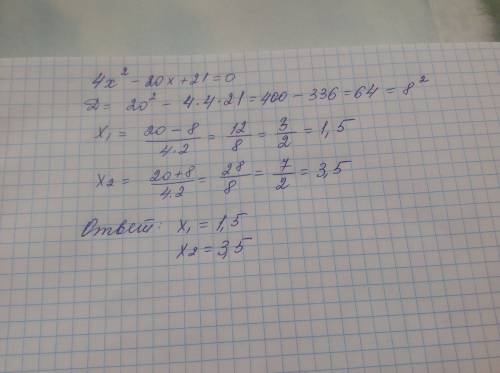 4x² - 20x + 21 = 0
D = 20² - 4·4·21 = 400 - 336 = 64 = 8²
x₁ = (20-8)/(4·2) = 12/8 = 3/2 = 1,5
x₂ = (20+8)/(4·2) = 28/8 = 7/2 = 3,5
Ответ: x₁ = 1,5
x₂ = 3,5